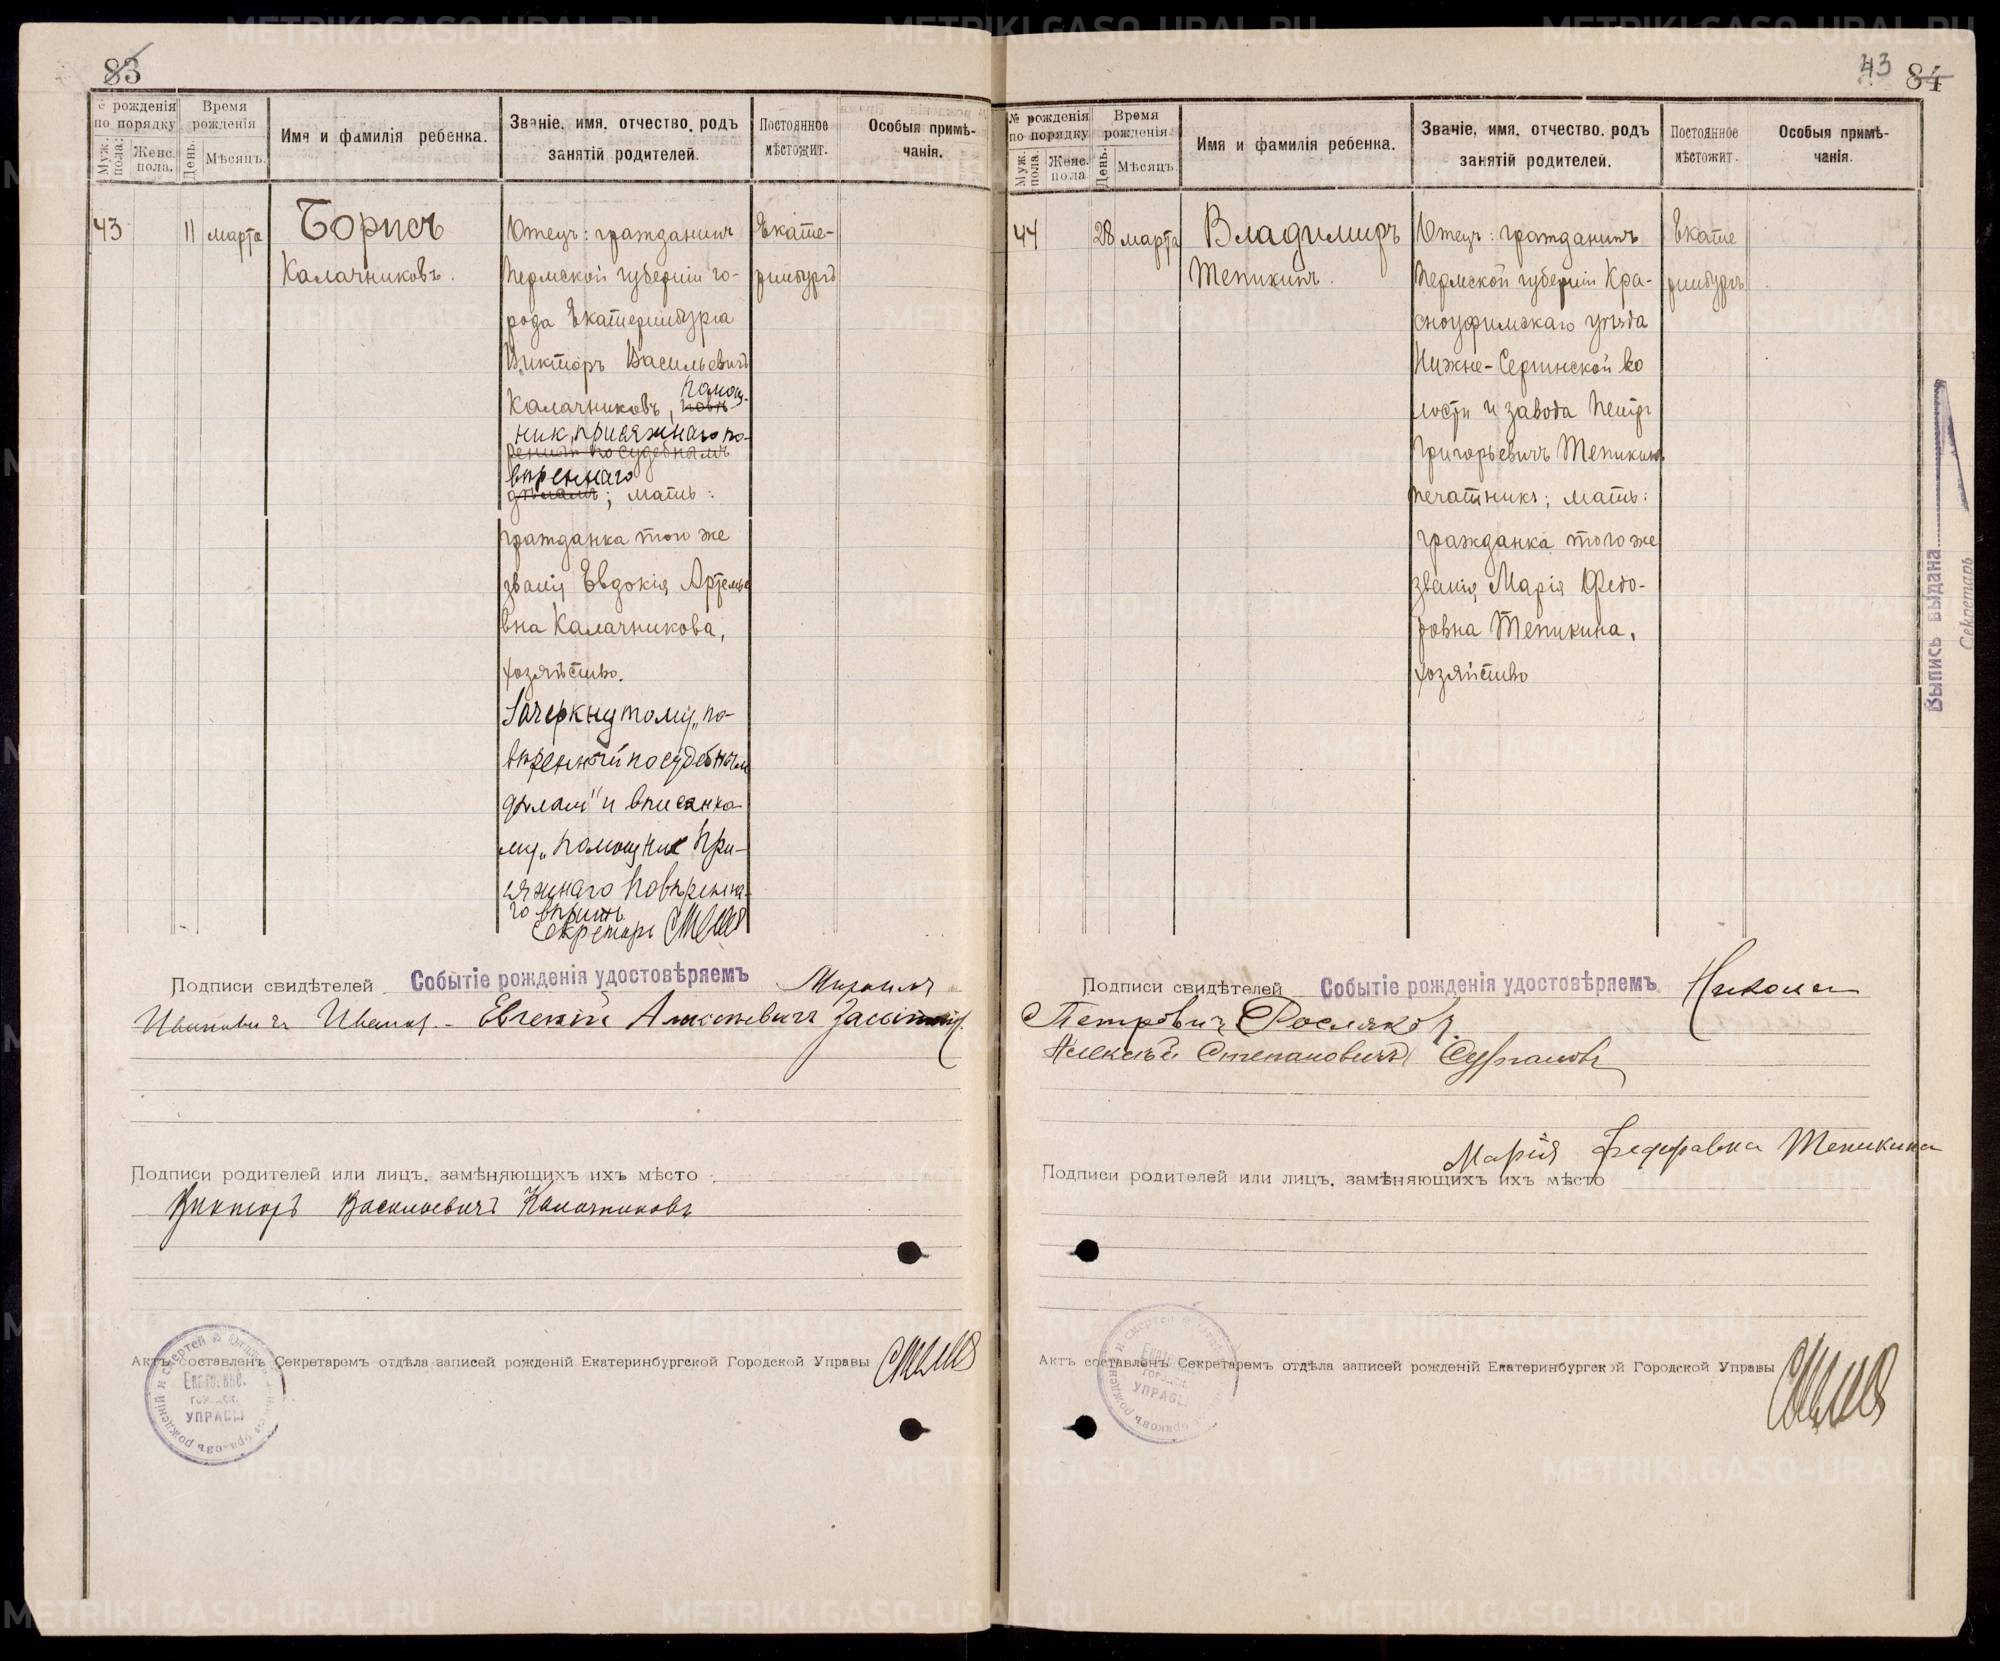 83
№ рожденія по порядку
Муж. пола.
Женс. пола.
Время рожденія
День.
Мѣсяцъ.
Имя и фамилія ребенка.
Званіе, имя, отчество, родъ
занятій родителей.
Постоянное
мѣстожит.
Особыя примѣ-
чанія.
43
11 марта
Борисъ
Калачниковъ.
Отецъ: гражданинъ
Пермской губерніи го-
рода Екатеринбурга
Викторъ Васильевичъ
Калачниковъ, помощ-
ник, присяжнаго по-
вѣреннаго
дѣламъ; мать:
гражданка того же
званія Евдокія Артемье
вна Калачникова,
хозяйство.
Зачеркнутому „по-
вѣренный по судебнымъ
дѣламъ" и вписанно-
му „помощник при-
сяжнаго повѣренна-
го вѣрить
Секретарь
Екате-
ринбургъ
Подписи свидѣтелей
Событіе рожденія удостовѣряемъ
Михаилъ
Ивановичъ Иванов. - Евгеній Алексѣевичъ
Подписи родителей или лицъ, замѣняющихъ ихъ мѣсто
Викторъ Васильевичъ Калачниковъ
Актъ составленъ Секретаремъ отдѣла записей рожденій Екатеринбургской Городской Управы
УПРАВЫ
43
84
№ рожденія по порядку
Муж. пола.
Женс. пола
Время рожденія
День.
Мѣсяцъ.
Имя и фамилія ребенка.
Званіе, имя, отчество, родъ
занятій родителей.
Постоянное
мѣстожит.
Особыя примѣ-
чанія.
44
28 марта
Владимиръ
Тепикинъ.
Отецъ: гражданинъ
Пермской губерніи Кра-
сноуфимскаго уѣзда
Нижне-Сергинской во
лости и завода Петръ
Григорьевичъ Тепикинъ
печатникъ; мать:
гражданка того же
званія Марія Федо-
ровна Тепикина,
хозяйство
Екате
ринбургъ
Выпись выдана
Секретарь
Подписи свидѣтелей
Событіе рожденія удостовѣряемъ
Николай
Петровичъ Росляковъ.
Алексѣй Степановичъ
Марія Федоровна Тепикина
Подписи родителей или лицъ, замѣняющихъ ихъ мѣсто
Актъ составленъ Секретаремъ отдѣла записей рожденій Екатеринбургской Городской Управы
УПРАВЫ
METRIKI.GASO-URAL.RU